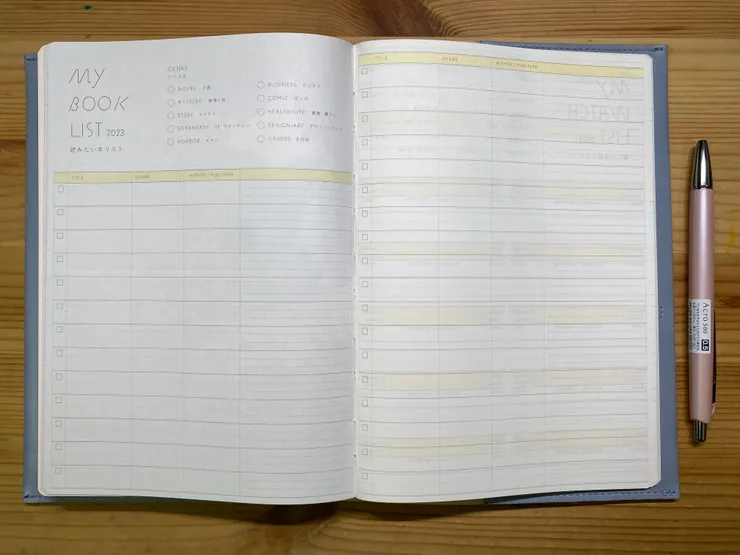 MY
BOOK
LIST 2023
読みたい本リスト
GENRE
ジャンル
NOVEL 小説
MYSTERY 推理小説
ESSAY エッセイ
SF/FANTASY SF・ファンタジー
HORROR ホラー
BUSINESS ビジネス
COMIC マンガ
HEALTH/LIFE 健康・暮らし
DESIGN/ART デザイン・アート
OTHERS その他
TITLE GENRE AUTHOR / PUBLISHER
TITLE GENRE AUTHOR / PUBLISHER
MY
WATCH
LIST
Acro 500 0.5